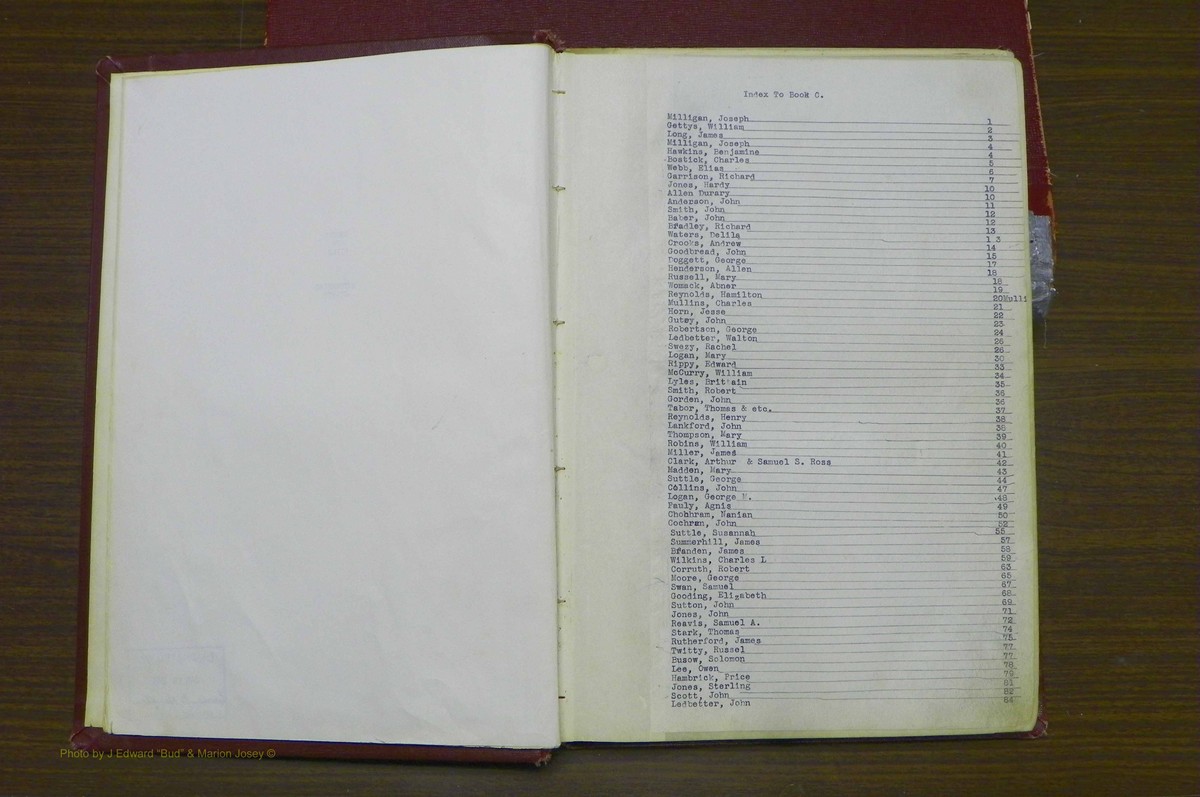 Index To Book C.
Milligan, Joseph 1
Gettys, William 2
Long, James 3
Milligan, Joseph 4
Hawkins, Benjamine 4
Bostick, Charles 5
Webb, Elias 6
Garrison, Richard 7
Jones, Hardy 10
Allen Durary 10
Anderson, John 11
Smith, John 12
Baber, John 12
Bradley, Richard 13
Waters, Delila 1 3
Crooks, Andrew 14
Goodbread, John 15
Doggett, George 17
Henderson, Allen 18
Russell, Mary 18
Womack, Abner 19
Reynolds, Hamilton 20Mulli
Mullins, Charles 21
Horn, Jesse 22
Gutey, John 23
Robertson, George 24
Ledbetter, Walton 26
Swezy, Rachel 26
Logan, Mary 30
Rippy, Edward 33
McCurry, William 34
Lyles, Brittain 35
Smith, Robert 35
Gorden, John 36
Tabor, Thomas & etc. 37
Reynolds, Henry 38
Lankford, John 38
Thompson, Mary 39
Robins, William 40
Miller, James 41
Clark, Arthur & Samuel S. Ross 42
Madden, Mary 43
Suttle, George 44
Collins, John 47
Logan, George 48
Pauly, Agnis 49
Chohhram, Nanian 50
Cochran, John 52
Suttle, Susannah 55
Summerhill, James 57
Branden, James 58
Wilkins, Charles L 59
Corruth, Robert 63
Moore, George 65
Swan, Samuel 67
Gooding, Elizabeth 68
Sutton, John 69
Jones, John 71
Reavis, Samuel A. 72
Stark, Thomas 74
Rutherford, James 75
Twitty, Russel 77
Busow, Solomon 77
Lee, Owen 78
Hambrick, Price 79
Jones, Sterling 81
Scott, John 82
Ledbetter, John 84
Photo by J Edward "Bud" & Marion Josey ©